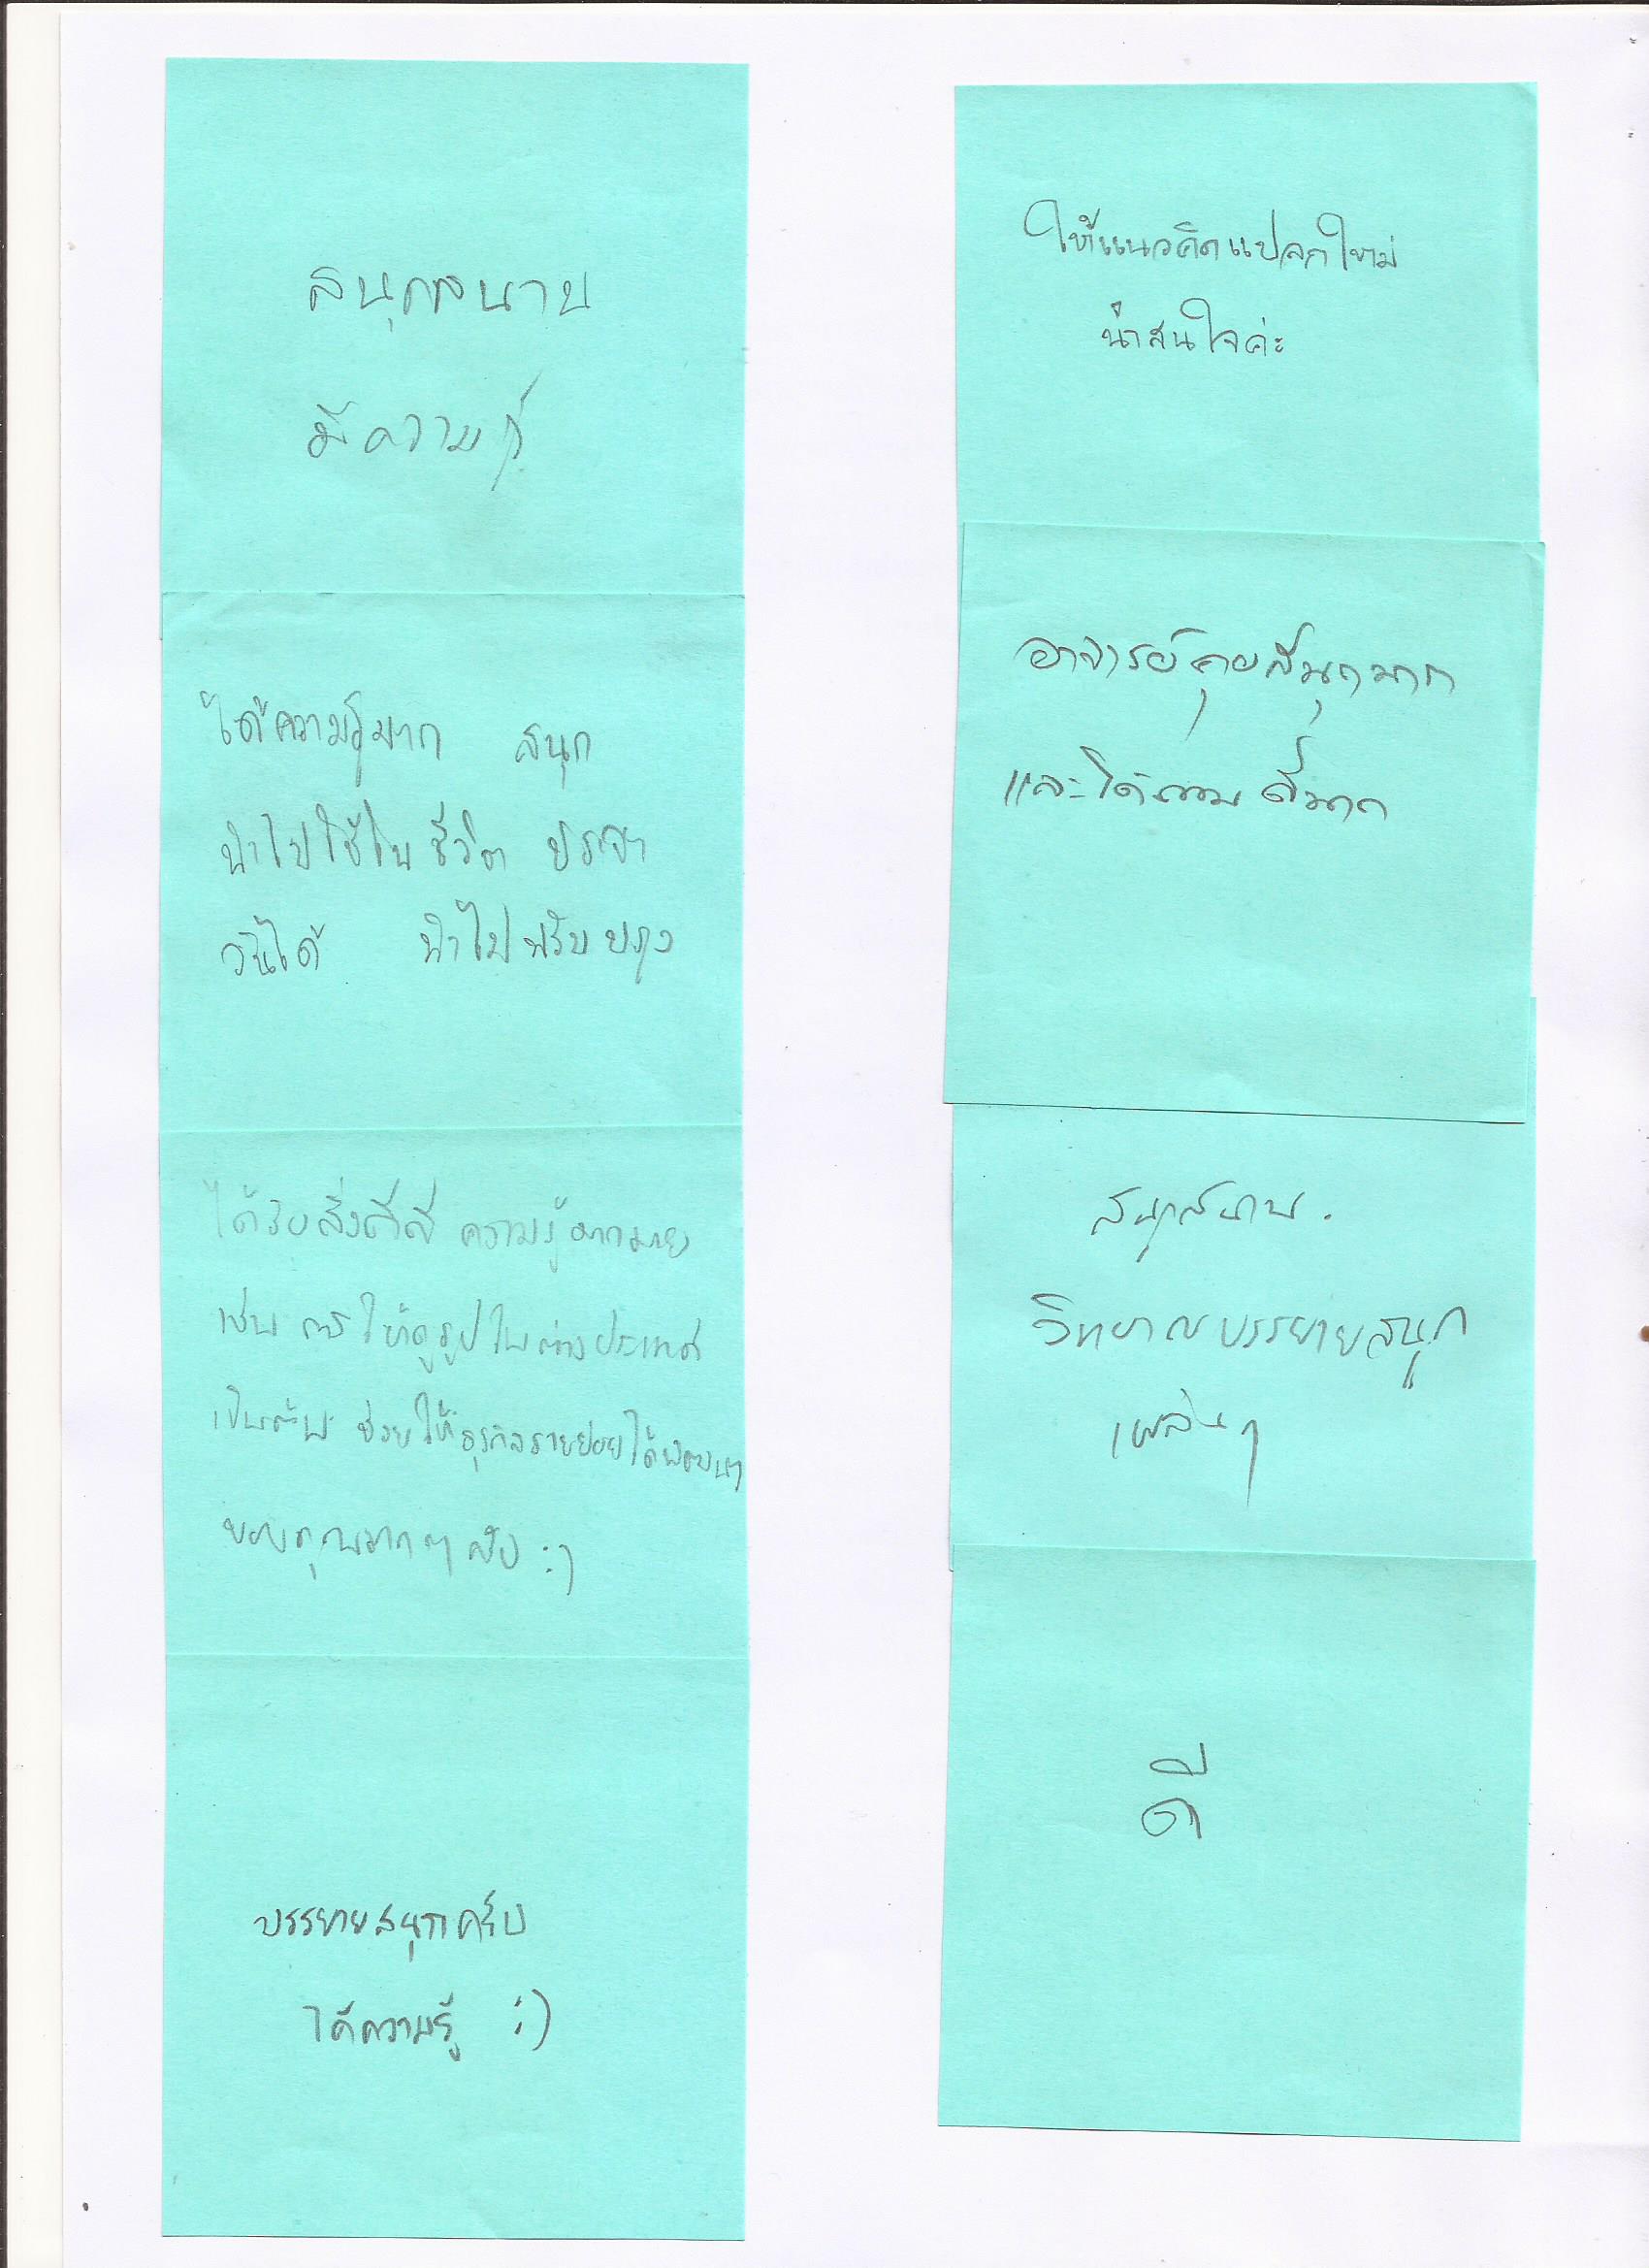 สนุกสนาน
มีความรู้
ได้ความรู้มาก สนุก
นำไปใช้ในชีวิต ประจำ
วันได้ นำไปปรับปรุง
ได้รับสิ่งดีๆ ความรู้มากมาย
เช่น การให้ดูรูปในต่างประเทศ
เป็นต้น ช่วยให้ธุรกิจรายย่อยได้พัฒนา
ขอบคุณมากๆ ครับ :)
บรรยายสนุกครับ
ได้ความรู้ :)
ให้แนวคิดแปลกใหม่
น่าสนใจค่ะ
อาจารย์คุยสนุกมาก
และได้ความรู้มาก
สนุกสนาน.
วิทยากรบรรยายสนุก
ดี